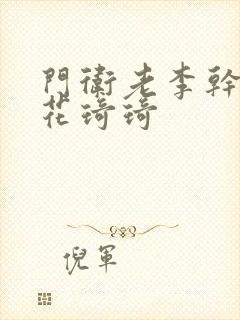 門衛老李幹
花琦琦
倪軍